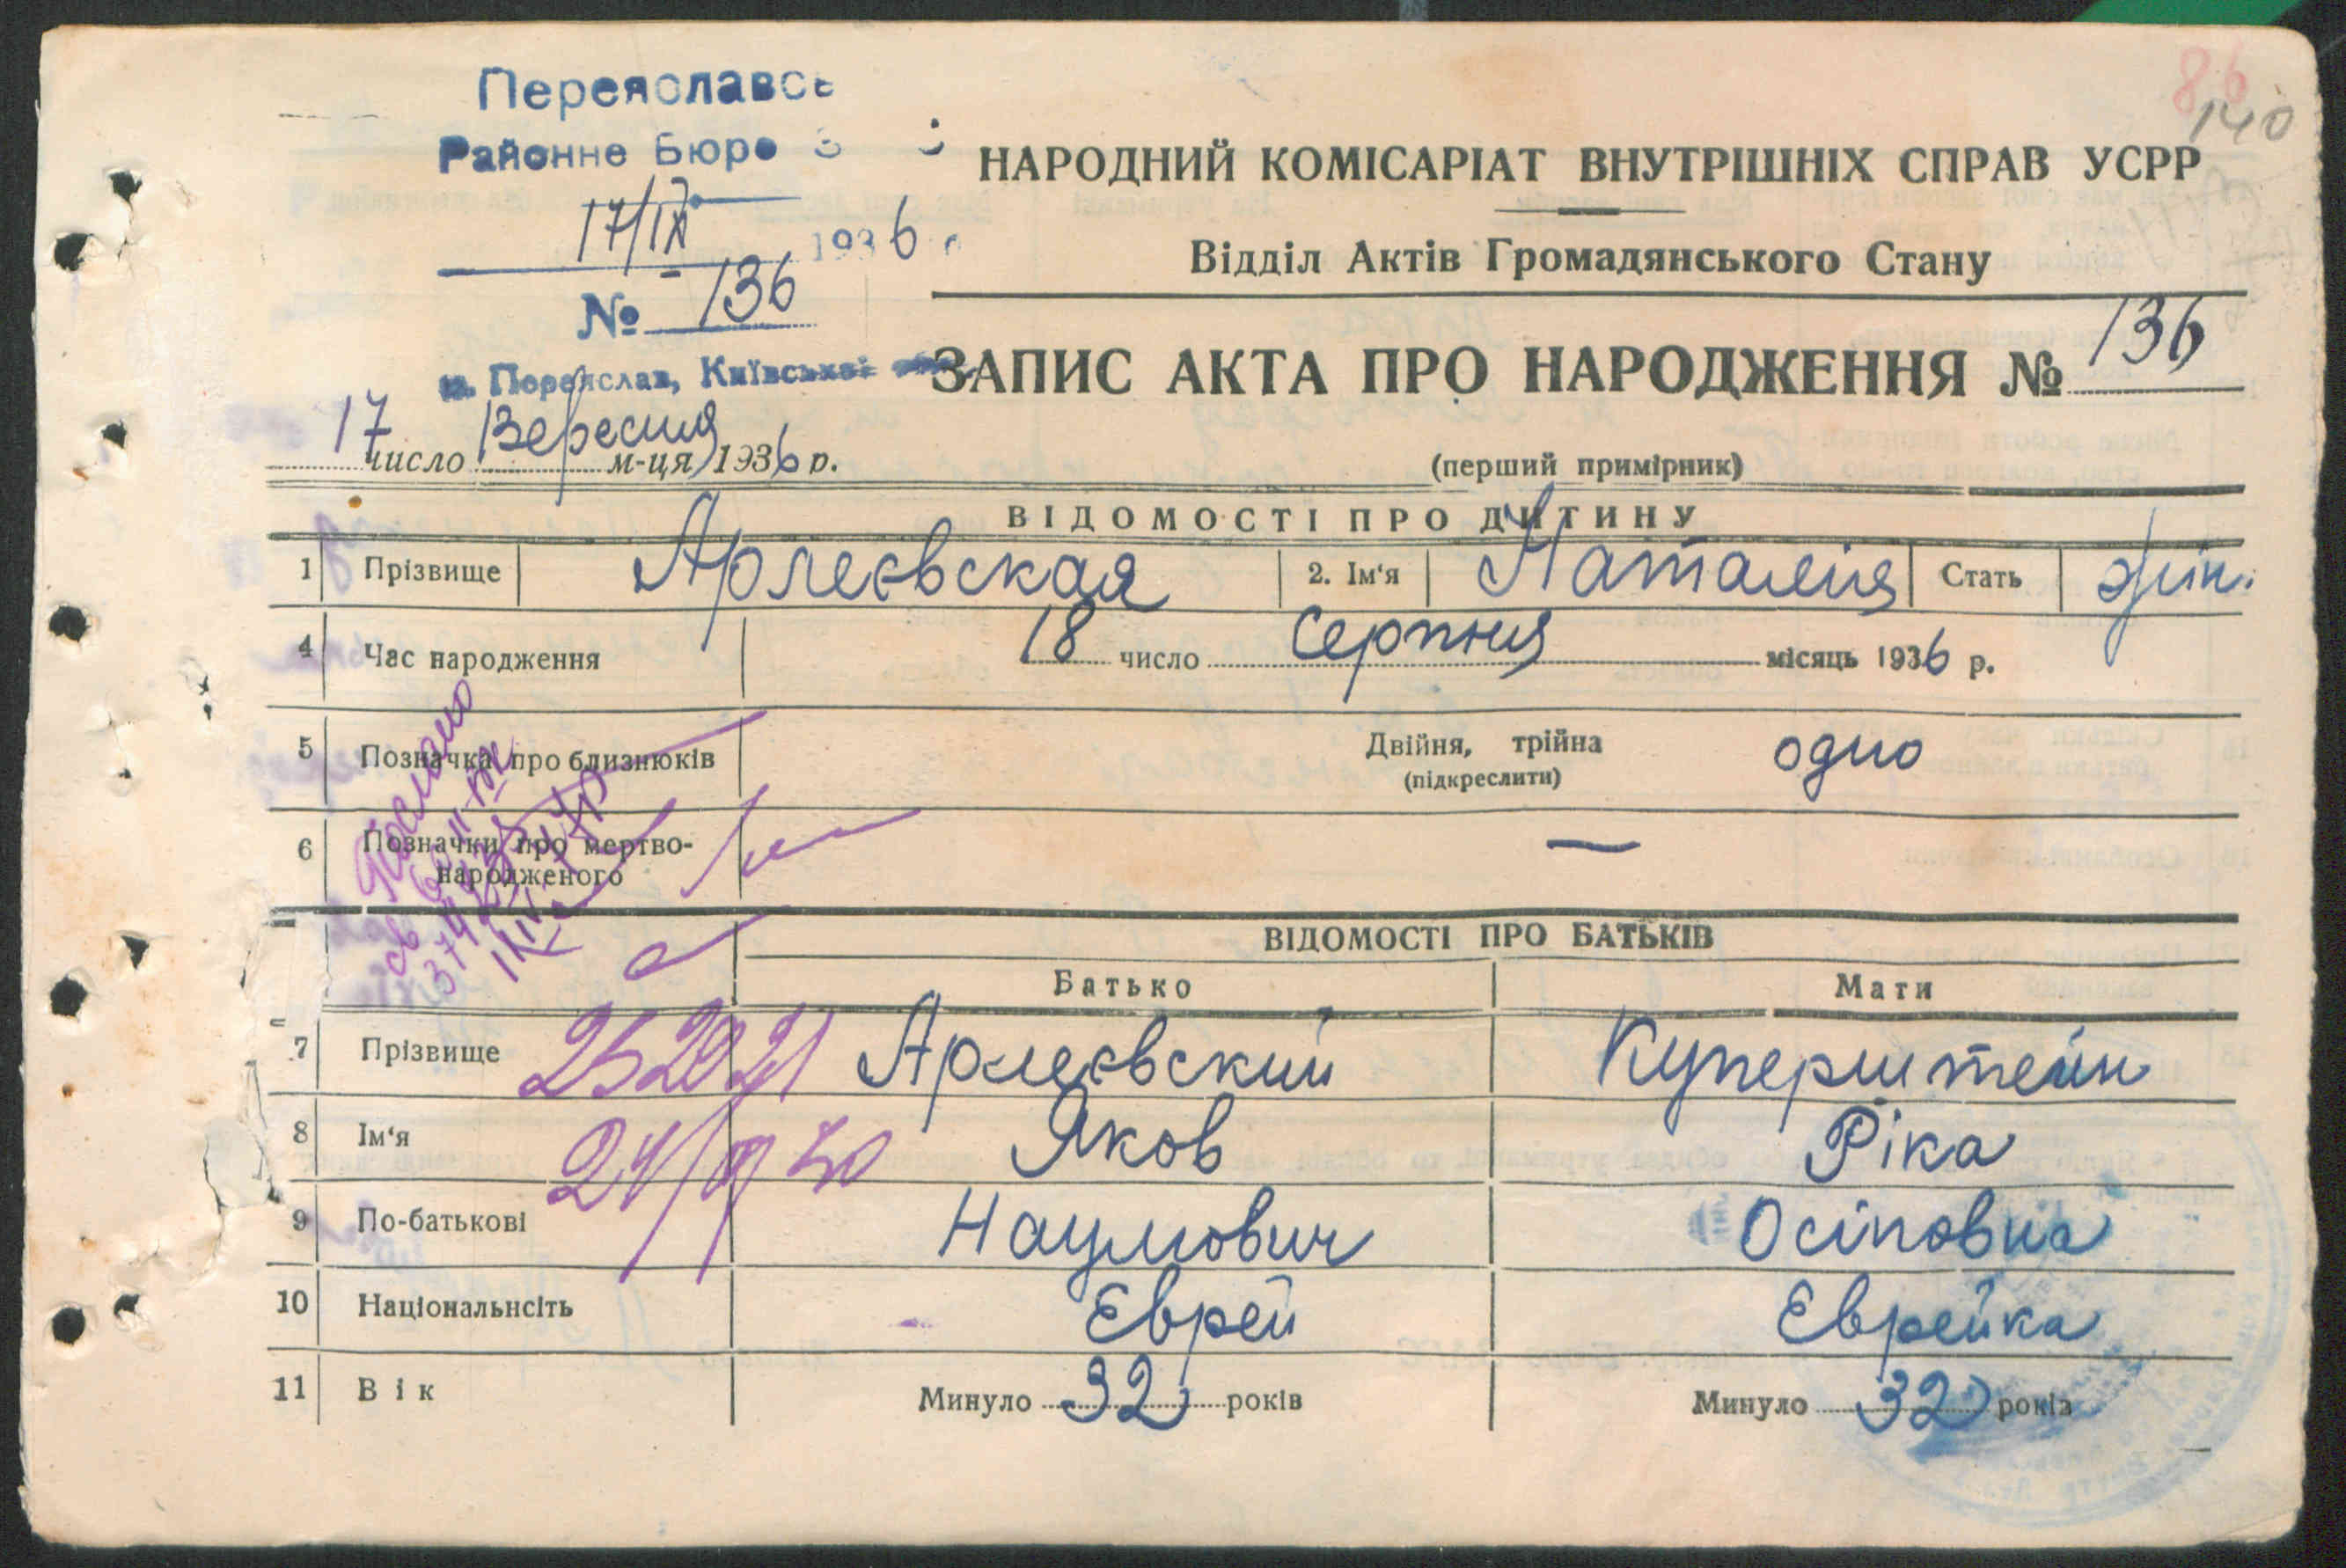 86
140
Переяславсь
Районне Бюро З
17/IX 1936 р
№ 136
м. Переяслав, Київської
17 число Вересня м-ця 1936 р.
НАРОДНИЙ КОМІСАРІАТ ВНУТРІШНІХ СПРАВ УСРР
Відділ Актів Громадянського Стану
ЗАПИС АКТА ПРО НАРОДЖЕННЯ № 136
(перший примірник)
ВІДОМОСТІ ПРО ДИТИНУ
1 Прізвище Арлеєвская 2. Ім'я Наталія Стать жін.
4 Час народження 18 число Серпня місяць 1936 р.
5 Позначка про близнюків Двійня, трійна одно
(підкреслити)
6 Позначки про мертво-
народженого —
ВІДОМОСТІ ПРО БАТЬКІВ
Батько Мати
7 Прізвище Арлеєвский Куперштейн
8 Ім'я Яков Ріка
9 По-батькові Наумович Осіповна
10 Національнсіть Єврей Єврейка
11 Вік Минуло 32 років Минуло 32 років